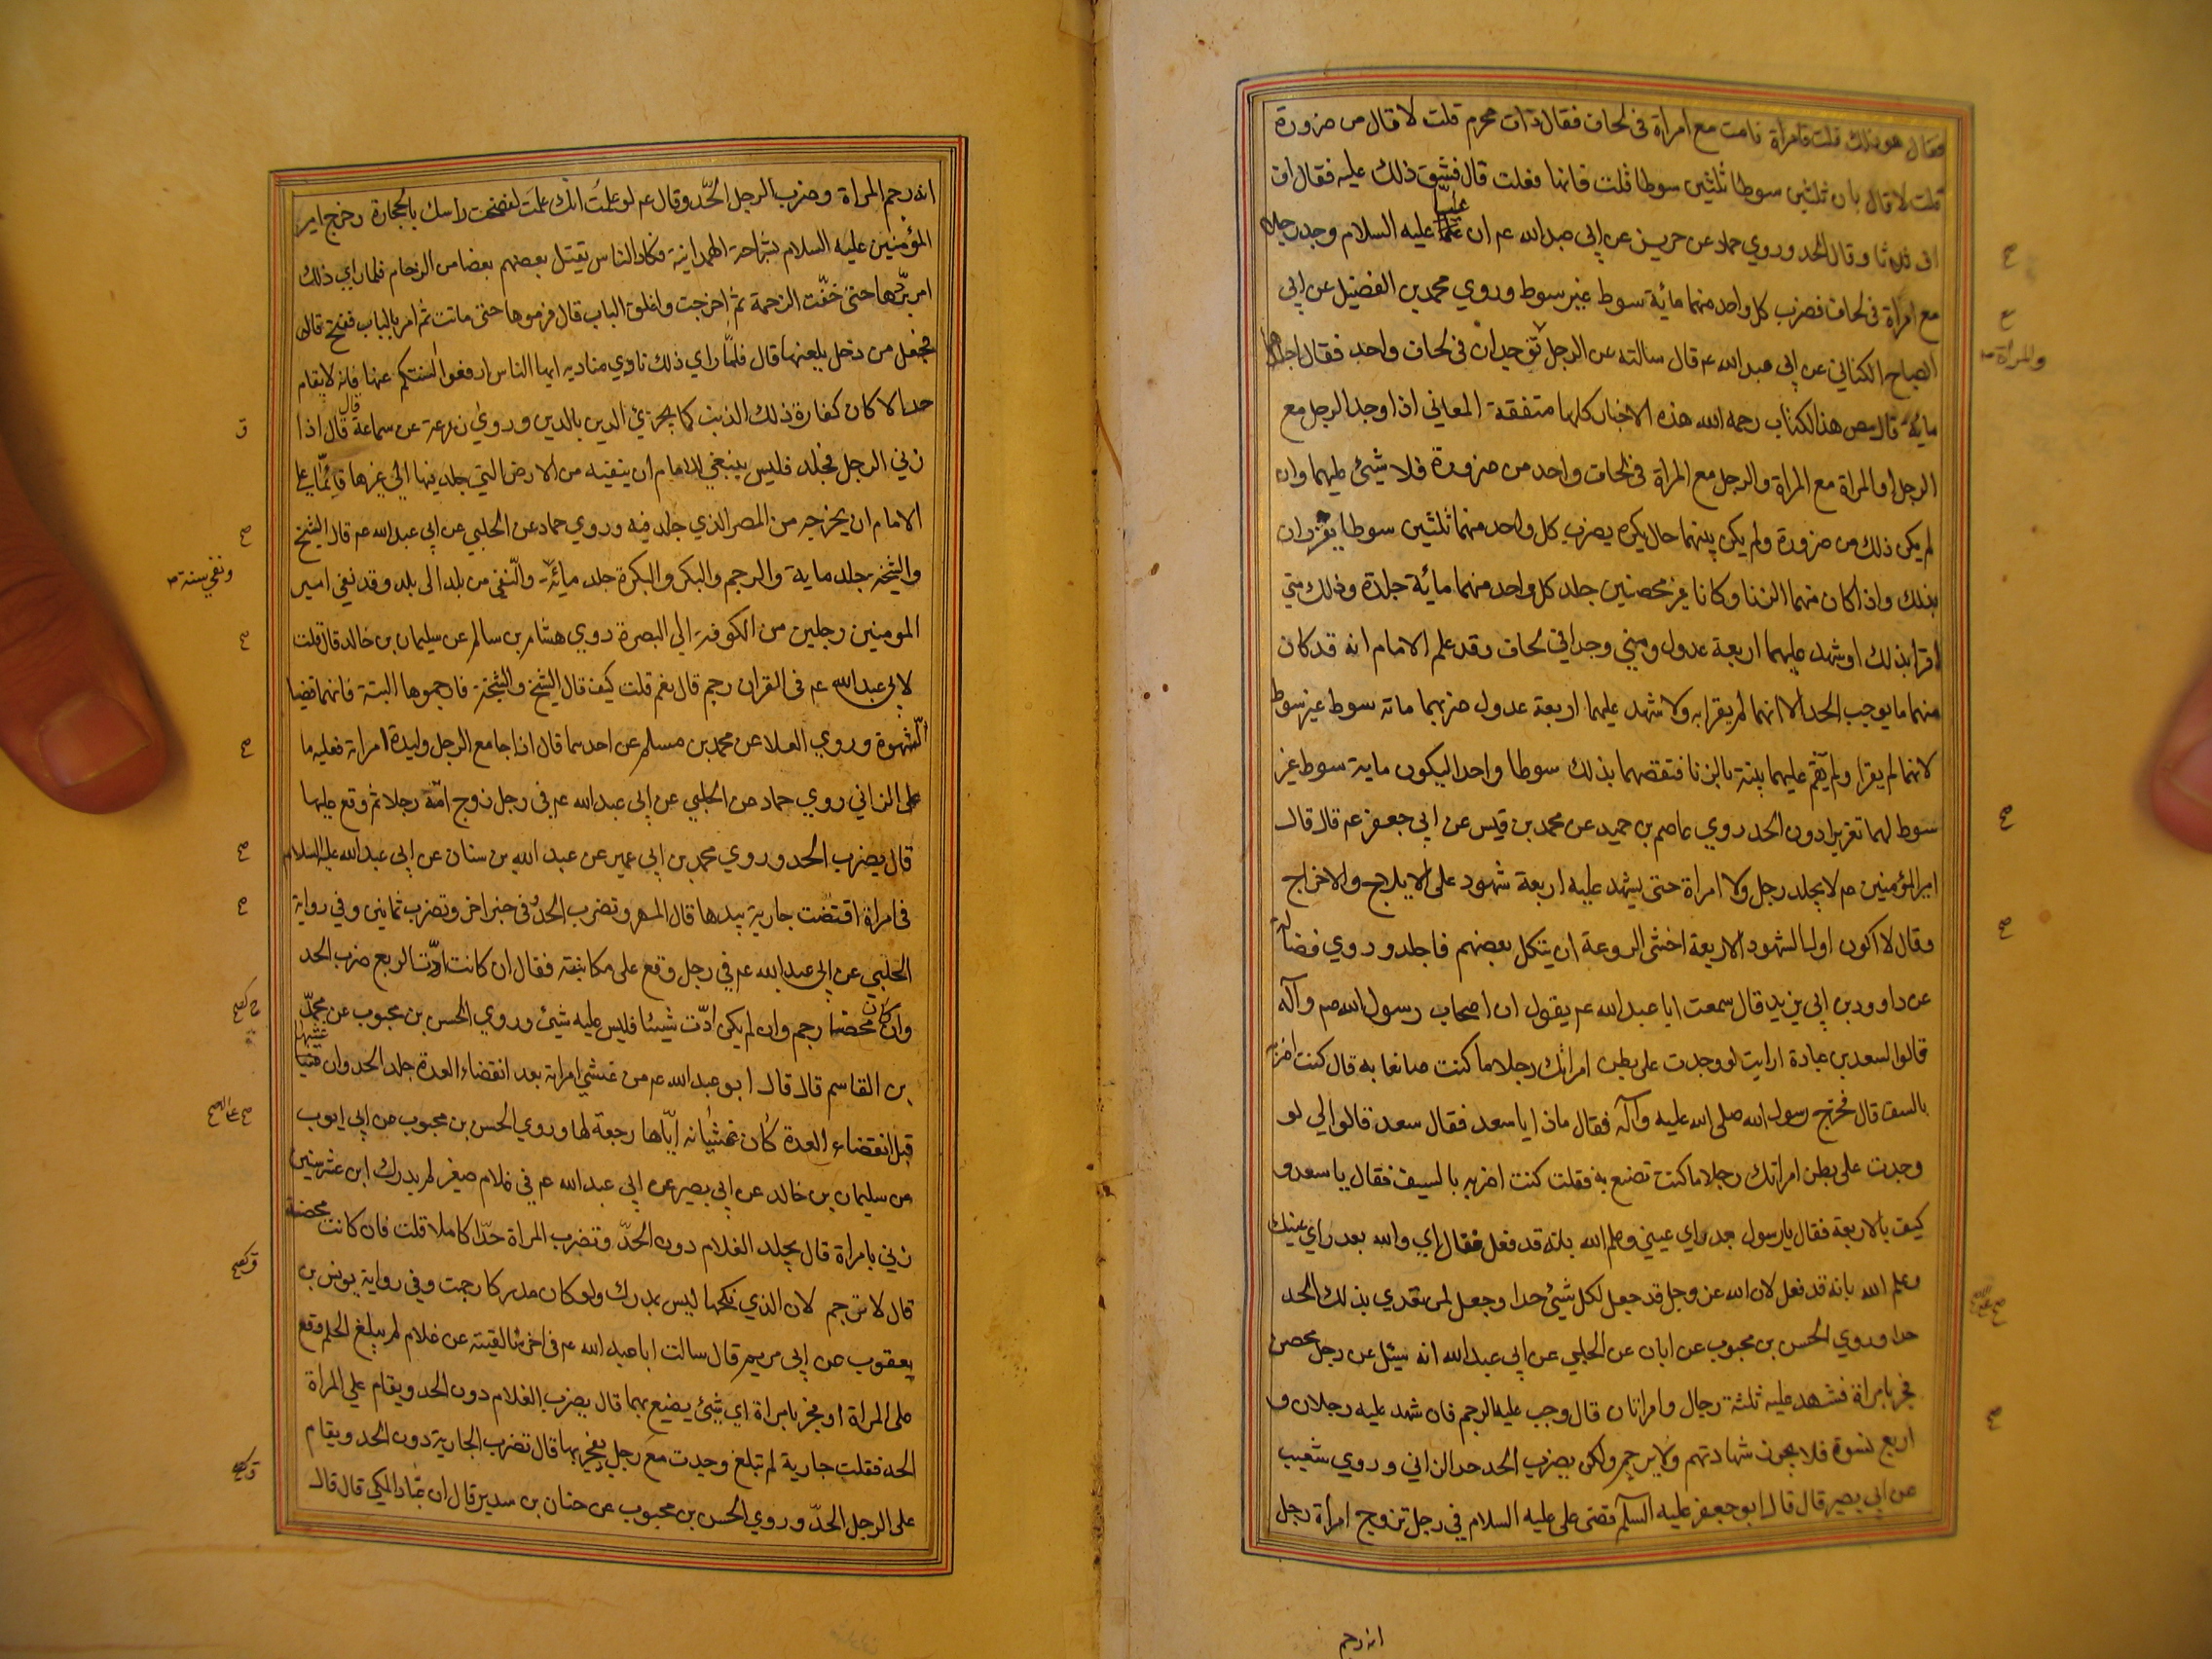 فقال هو ذلك قلت فامراة نامت مع امراة فى لحاف فقال ذات محرم قلت لا قال من ضرورة
قلت لا قال يضربان ثلثين سوطا ثلثين سوطا قلت فانها فعلت قال فشق ذلك عليه فقال اف
اف اف ثلاثا وقال الحد وروي حماد عن حريز عن ابي عبد الله عم ان عليا عليه السلام وجد رجلا
مع امراة فى لحاف فضرب كل واحد منهما مائة سوط غير سوط وروي محمد بن الفضيل عن ابي
الصباح الكناني عن ابي عبد الله عم قال سالته عن الرجل يوجدان فى لحاف واحد فقال اجلدهما
والمراة
مائة قال مص هذا الكتاب رحمه الله هذه الاخبار كلها متفقة المعاني اذا وجد الرجل مع
الرجل او المراة مع المراة والرجل مع المراة فى لحاف واحد من ضرورة فلا شيئ عليهما وان
لم يكن ذلك من ضرورة ولم يكن بينهما حال يكره يضرب كل واحد منهما ثلثين سوطا يعزران
بذلك واذا كان منهما الزنا وكانا غير محصنين جلد كل واحد منهما مائة جلدة وذلك متي
اقرا بذلك او شهد عليهما اربعة عدول ومتي وجدا في لحاف وقد علم الامام انه قد كان
منهما ما يوجب الحد الا انهما لم يقرا به ولا شهد عليهما اربعة عدول ضربهما مائة سوط غير سوط
لانهما لم يقرا ولم تقم عليهما بينة بالزنا فينقصهما بذلك سوطا واحدا ليكون ماية سوط غير
سوط لهما تعزيرا دون الحد روي عاصم بن حميد عن محمد بن قيس عن ابي جعفر عم قال قال
امير المؤمنين عم لا يجلد رجل ولا امراة حتى يشهد عليه اربعة شهود على الايلاج والاخراج
وقال لا اكون اول الشهود الاربعة اخشى الروعة ان ينكل بعضهم فاجلد وروي فضالة
عن داوود بن ابي يزيد قال سمعت ابا عبد الله عم يقول ان اصحاب رسول الله صم وآله
قالوا لسعد بن عبادة ارايت لو وجدت على بطن امراتك رجلا ما كنت صانعا به قال كنت اضربه
بالسيف قال فخرج رسول الله صلى الله عليه وآله فقال ماذا يا سعد فقال سعد قالوا لي لو
وجدت على بطن امراتك رجلا ما كنت تصنع به فقلت كنت اضربه بالسيف فقال يا سعد و
كيف بالاربعة فقال يا رسول بعد راي عيني وعلم الله بانه قد فعل فقال اي والله بعد راي عينك
وعلم الله بانه قد فعل لان الله عز وجل قد جعل لكل شيئ حدا وجعل لمن تعدي بذلك الحد
حدا وروي الحسن بن محبوب عن ابان عن الحلبي عن ابي عبد الله انه سئل عن رجل محصن
فجر بامراة فشهد عليه ثلثة رجال وامراتان قال وجب عليه الرجم فان شهد عليه رجلان و
اربع نسوة فلا يجوز شهادتهم ولا يرجم ولكن يضرب الحد حد الزاني وروي شعيب
عن ابي بصير قال قال ابو جعفر عليه السلم قضى علي عليه السلام في رجل تزوج امراة رجل
انه رجم
انه رجم المراة وضرب الرجل الحدّ وقال عم لو علمت انك علمت لفضخت راسك بالحجارة وخرج امير
المؤمنين عليه السلام بشراحة الهمدانية فكاد الناس يقتل بعضهم بعضا من الزحام فلما راي ذلك
امر بردّها حتى خفّت الزحمة ثم اخرجت واغلق الباب قال فرموها حتى ماتت ثم امر بالباب ففتح قال
فجعل من دخل يلعنها قال فلمّا راي ذلك نادي مناديه ايها الناس ارفعوا السنتكم عنها فانه لا يقام
حد الا كان كفارة ذلك الذنب كما يجزئ الدين بالدين وروي زرعة عن سماعة قال قال اذا
زني الرجل فجلد فليس ينبغي للامام ان ينفيه من الارض التي جلد فيها الي غيرها فانّما علي
الامام ان يخرجه من المصر الذي جلد فيه وروي حماد عن الحلبي عن ابي عبد الله عم قال الشيخ
والشيخة جلد ماية والرجم والبكر والبكرة جلد مائة والنفي من بلد الى بلد وقد نفي امير
ونفي سنة
المومنين رجلين من الكوفة الي البصرة روي هشام بن سالم عن سليمان بن خالد قال قلت
لابي عبد الله عم فى القران رجم قال نعم قلت كيف قال الشيخ والشيخة فارجموها البتة فانهما قضيا
الشهوة وروي العلا عن محمد بن مسلم عن احدهما قال اذا جامع الرجل وليدة امراته فعليه ما
على الزاني روي حماد عن الحلبي عن ابي عبد الله عم في رجل زوج امته رجلا ثم وقع عليها
قال يضرب الحد وروي محمد بن ابي عمير عن عبد الله بن سنان عن ابي عبد الله عليه السلام
فى امراة اقتضت جارية بيدها قال المهر وتضرب الحد وفى خبر اخر وتضرب ثمانين وفي رواية
الحلبي عن ابي عبد الله عم في رجل وقع على مكاتبته فقال ان كانت ادّت الربع ضرب الحد
وان كان محصنا رجم وان لم يكن ادّت شيئا فليس عليه شيئ وروي الحسن بن محبوب عن محمّد
بن القاسم قال قال ابو عبد الله عم من غشي امراته بعد انقضاء العدة جلد الحد وان غشيها
قبل انقضاء العدة كان غشيانه ايّاها رجعة لها وروي الحسن بن محبوب عن ابي ايوب
عن سليمان بن خالد عن ابي بصير عن ابي عبد الله عم في غلام صغير لم يدرك ابن عشر سنين
زني بامراة قال يجلد الغلام دون الحدّ وتضرب المراة حدّا كاملا قلت فان كانت محصنة
قال لا ترجم لان الذي نكحها ليس بمدرك ولو كان مدركا رجمت وفي رواية يونس بن
يعقوب عن ابي مريم قال سالت ابا عبد الله عم فى اخر ما لقيته عن غلام لم يبلغ الحلم وقع
على المراة او فجر بامراة اي شيئ يصنع بهما قال يضرب الغلام دون الحد ويقام علي المراة
الحد فقلت جارية لم تبلغ وجدت مع رجل يفجر بها قال تضرب الجارية دون الحد ويقام
على الرجل الحدّ وروي الحسن بن محبوب عن حنان بن سدير قال ان عبّاد المكي قال قال